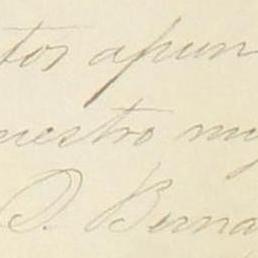 tos apun
uestro my
D. Berna